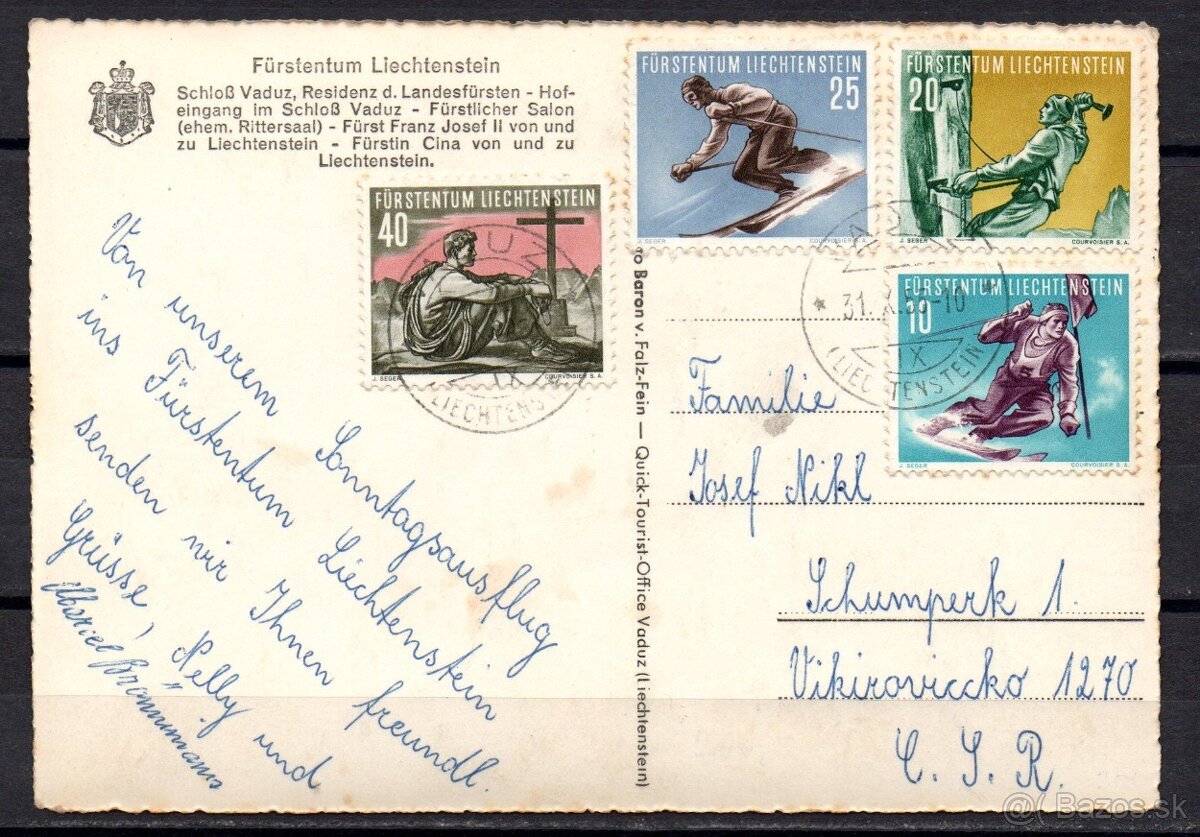 Fürstentum Liechtenstein
Schloß Vaduz, Residenz d. Landesfürsten - Hof-
eingang im Schloß Vaduz - Fürstlicher Salon
(ehem. Rittersaal) - Fürst Franz Josef II von und
zu Liechtenstein - Fürstin Gina von und zu
Liechtenstein.
FÜRSTENTUM LIECHTENSTEIN
25
J. SEGER
COURVOISIER S. A.
FÜRSTENTUM LIECHTENSTEIN
20
J. SEGER
COURVOISIER S. A.
FÜRSTENTUM LIECHTENSTEIN
40
J. SEGER
COURVOISIER S. A.
FÜRSTENTUM LIECHTENSTEIN
10
J. SEGER
COURVOISIER S. A.
VADUZ
IX
(LIECHTENSTEIN)
31. X. 55-10
IX
(LIECHTENSTEIN)
Von unserem Sonntagsausflug
ins Fürstentum Liechtenstein
senden wir Ihnen freundl.
Grüsse, Nelly und
Baron v. Falz-Fein — Quick-Tourist-Office Vaduz (Liechtenstein)
Familie
Josef Nikl
Schumperk 1.
Vikiroviccko 1270
C. S. R.
Bazos.sk